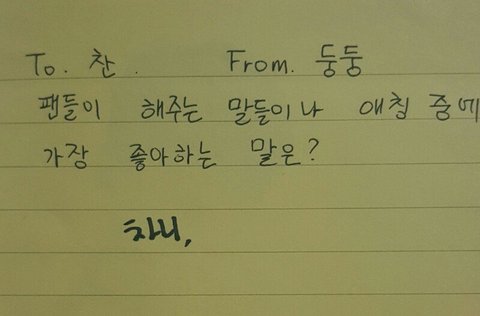 To. 찬. From. 둥둥
팬들이 해주는 말들이나 애칭 중에
가장 좋아하는 말은?
차니,